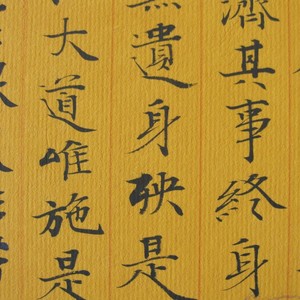 濟其事終身
無遺身殃是
大道唯施是